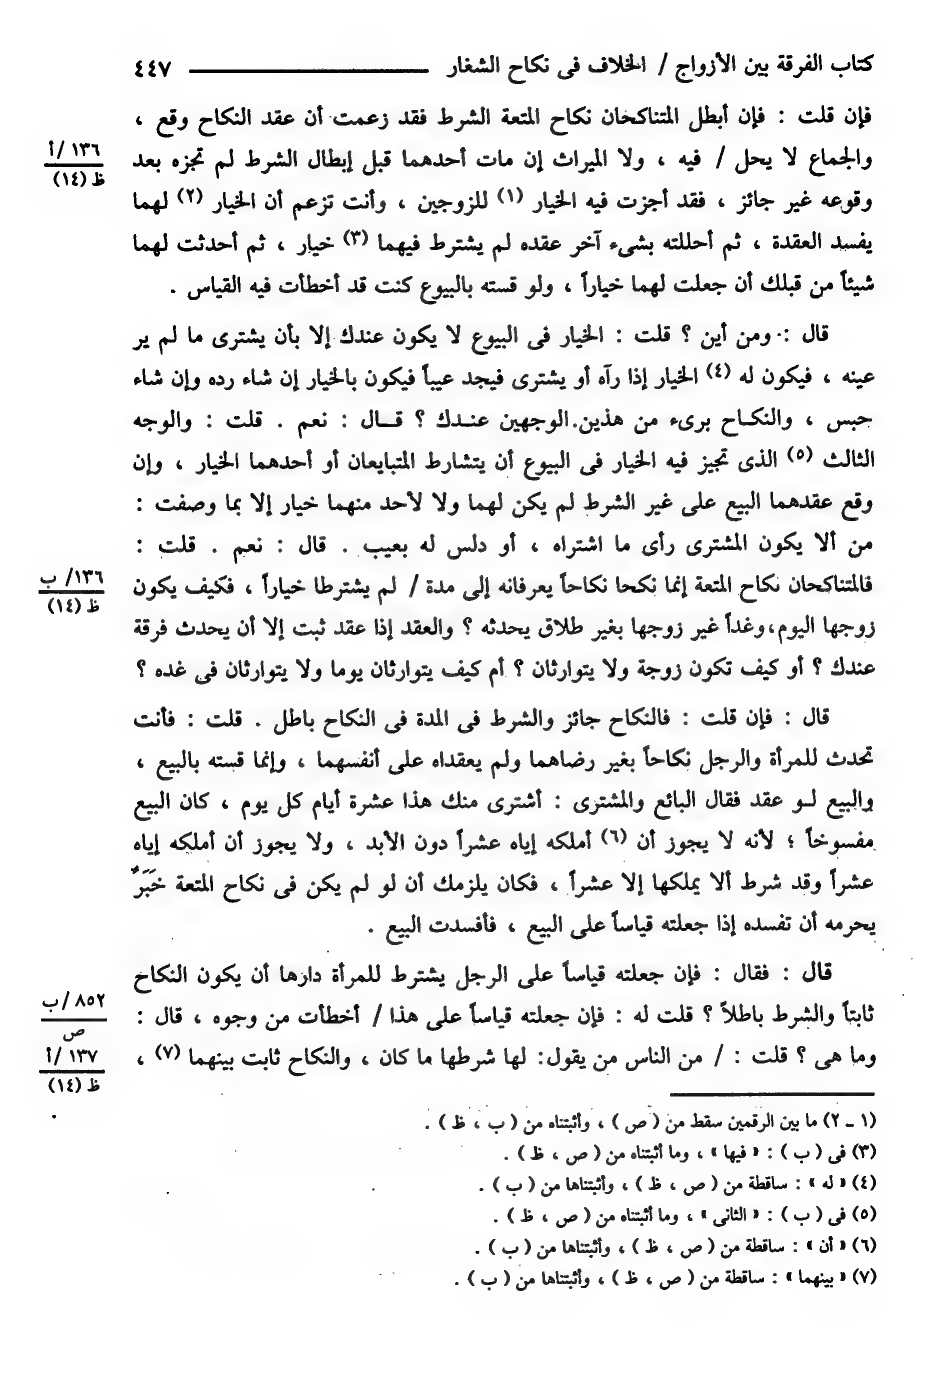 كتاب الفرقة بين الأزواج / الخلاف فى نكاح الشغار ــــــــــــ ٤٤٧
فإن قلت : فإن أبطل المتناكحان نكاح المتعة الشرط فقد زعمت أن عقد النكاح وقع ،
والجماع لا يحل / فيه ، ولا الميراث إن مات أحدهما قبل إبطال الشرط لم تجزه بعد
١٣٦ /أ
ظ (١٤)
وقوعه غير جائز ، فقد أجزت فيه الخيار (١) للزوجين ، وأنت تزعم أن الخيار (٢) لهما
يفسد العقدة ، ثم أحللته بشىء آخر عقده لم يشترط فيهما (٣) خيار ، ثم أحدثت لهما
شيئاً من قبلك أن جعلت لهما خياراً ، ولو قسته بالبيوع كنت قد أخطأت فيه القياس .
قال : ومن أين ؟ قلت : الخيار فى البيوع لا يكون عندك إلا بأن يشترى ما لم ير
عينه ، فيكون له (٤) الخيار إذا رآه أو يشترى فيجد عيباً فيكون بالخيار إن شاء رده وإن شاء
حبس ، والنكاح برىء من هذين الوجهين عندك ؟ قال : نعم . قلت : والوجه
الثالث (٥) الذى تجيز فيه الخيار فى البيوع أن يتشارط المتبايعان أو أحدهما الخيار ، وإن
وقع عقدهما البيع على غير الشرط لم يكن لهما ولا لأحد منهما خيار إلا بما وصفت :
من ألا يكون المشترى رأى ما اشتراه ، أو دلس له بعيب . قال : نعم . قلت :
فالمتناكحان نكاح المتعة إنما نكحا نكاحاً يعرفانه إلى مدة / لم يشترطا خياراً ، فكيف يكون
١٣٦/ ب
ظ (١٤)
زوجها اليوم،وغداً غير زوجها بغير طلاق يحدثه ؟ والعقد إذا عقد ثبت إلا أن يحدث فرقة
عندك ؟ أو كيف تكون زوجة ولا يتوارثان ؟ أم كيف يتوارثان يوما ولا يتوارثان فى غده ؟
قال : فإن قلت : فالنكاح جائز والشرط فى المدة فى النكاح باطل . قلت : فأنت
تحدث للمرأة والرجل نكاحاً بغير رضاهما ولم يعقداه على أنفسهما ، وإنما قسته بالبيع ،
والبيع لو عقد فقال البائع والمشترى : أشترى منك هذا عشرة أيام كل يوم ، كان البيع
مفسوخاً ؛ لأنه لا يجوز أن (٦) أملكه إياه عشراً دون الأبد ، ولا يجوز أن أملكه إياه
عشراً وقد شرط ألا يملكها إلا عشراً ، فكان يلزمك أن لو لم يكن فى نكاح المتعة خَبَرٌ
يحرمه أن تفسده إذا جعلته قياساً على البيع ، فأفسدت البيع .
قال : فقال : فإن جعلته قياساً على الرجل يشترط للمرأة دارها أن يكون النكاح
ثابتاً والشرط باطلاً ؟ قلت له : فإن جعلته قياساً على هذا / أخطأت من وجوه ، قال :
٨٥٢ /ب
ص
وما هى ؟ قلت : / من الناس من يقول: لها شرطها ما كان ، والنكاح ثابت بينهما (٧) ،
١٣٧ /أ
ظ (١٤)
(١ ـ ٢) ما بين الرقمين سقط من ( ص ) ، وأثبتناه من ( ب ، ظ ) .
(٣) فى ( ب ) : « فيها » ، وما أثبتناه من ( ص ، ظ ) .
(٤) « له » : ساقطة من ( ص ، ظ ) ، وأثبتناها من ( ب ) .
(٥) فى ( ب ) : « الثانى » ، وما أثبتناه من ( ص ، ظ ) .
(٦) « أن » : ساقطة من ( ص ، ظ ) ، وأثبتناها من ( ب ) .
(٧) « بينهما » : ساقطة من ( ص ، ظ ) ، وأثبتناها من ( ب ) .